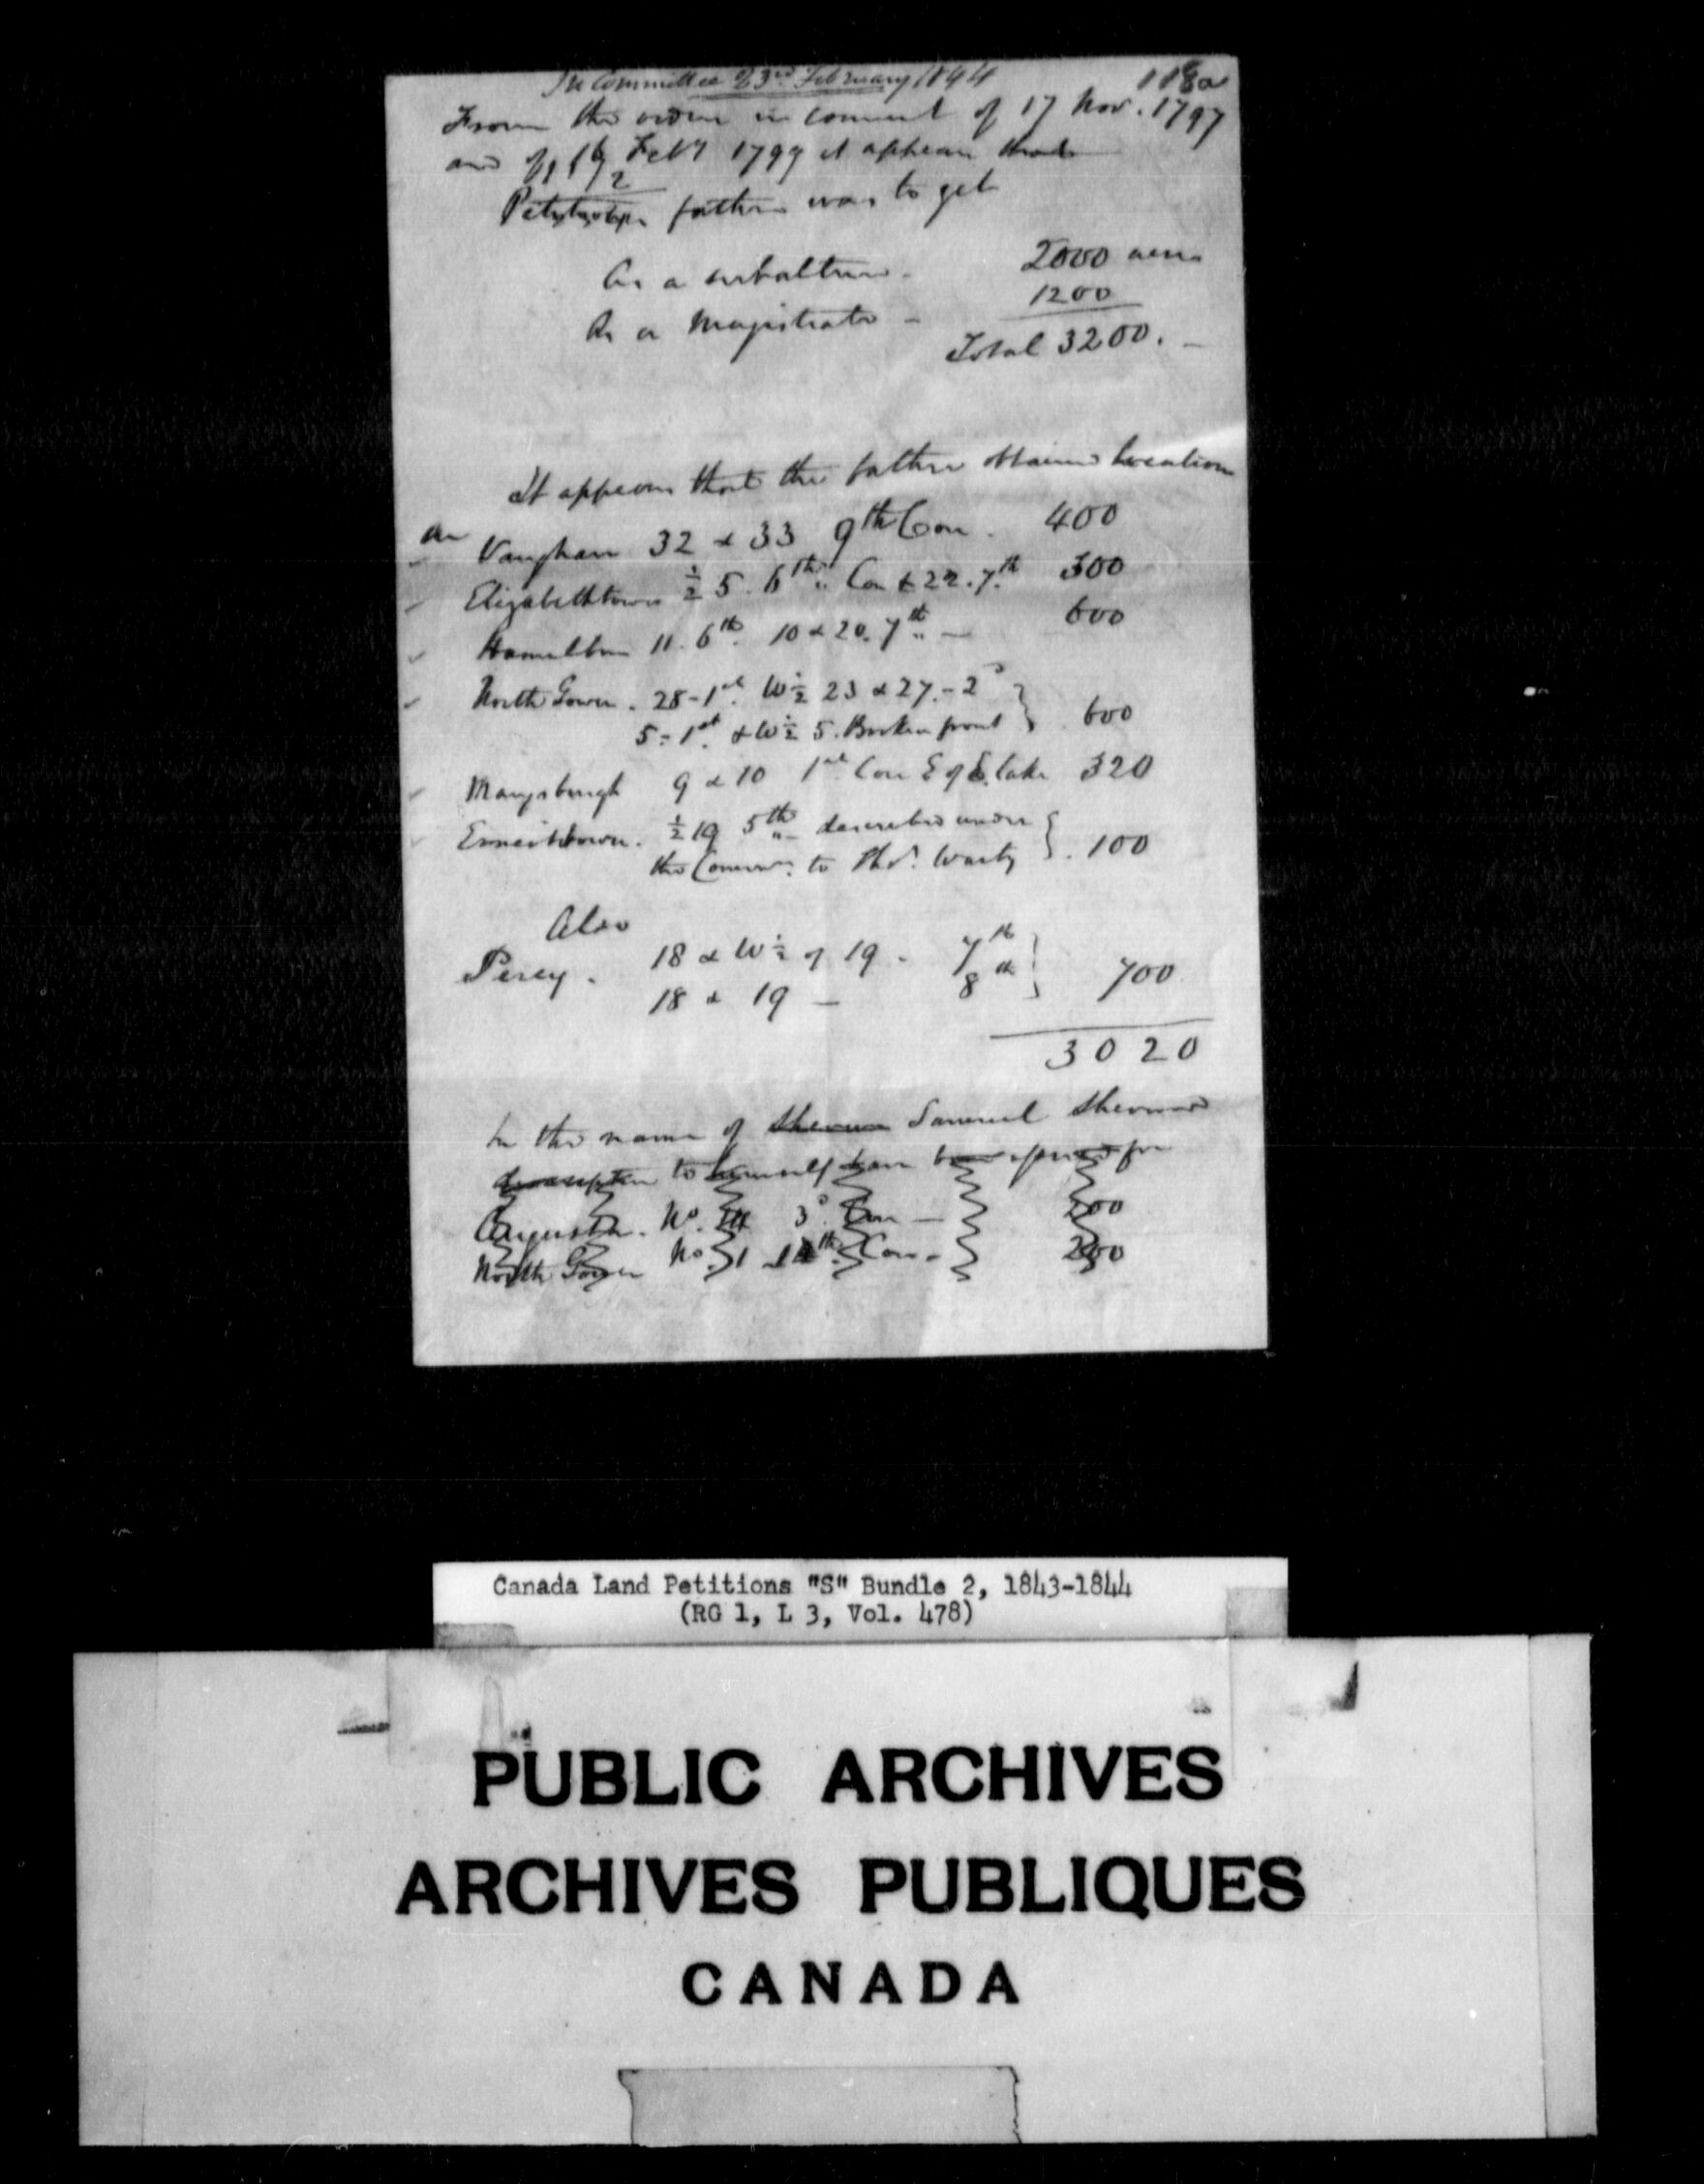 In Committee 23rd February 1844
118a
From the order in council of 17 Nov. 1797
and of Feby 1799 it appears that
father was to get
As a subaltern - 2000 acres
As a Magistrate - 1200
Total 3200. -
It appears that the father obtained location
in Vaughan 32 & 33 9th Con. 400
Elizabethtown ½ 5. 6th Con & 22. 7th 300
Hamilton 11. 6th 10 & 20. 7th - 600
North Gower. 28 - 1st W½ 23 & 27. - 2d
5 - 1st & W½ 5. Broken front } 600
Marysburgh 9 & 10 1st Con E of E. lake 320
Ernestown. ½ 19 5th described under
the to Thos. } 100
Also
Percy. 18 & W½ of 19. 7th
18 & 19 - 8th } 700
3020
In the name of Samuel Sherwood
to himself for
Augusta. No. 3d Con - 200
North Gower No. 1 Con - 200
Canada Land Petitions "S" Bundle 2, 1843-1844
(RG 1, L 3, Vol. 478)
PUBLIC ARCHIVES
ARCHIVES PUBLIQUES
CANADA